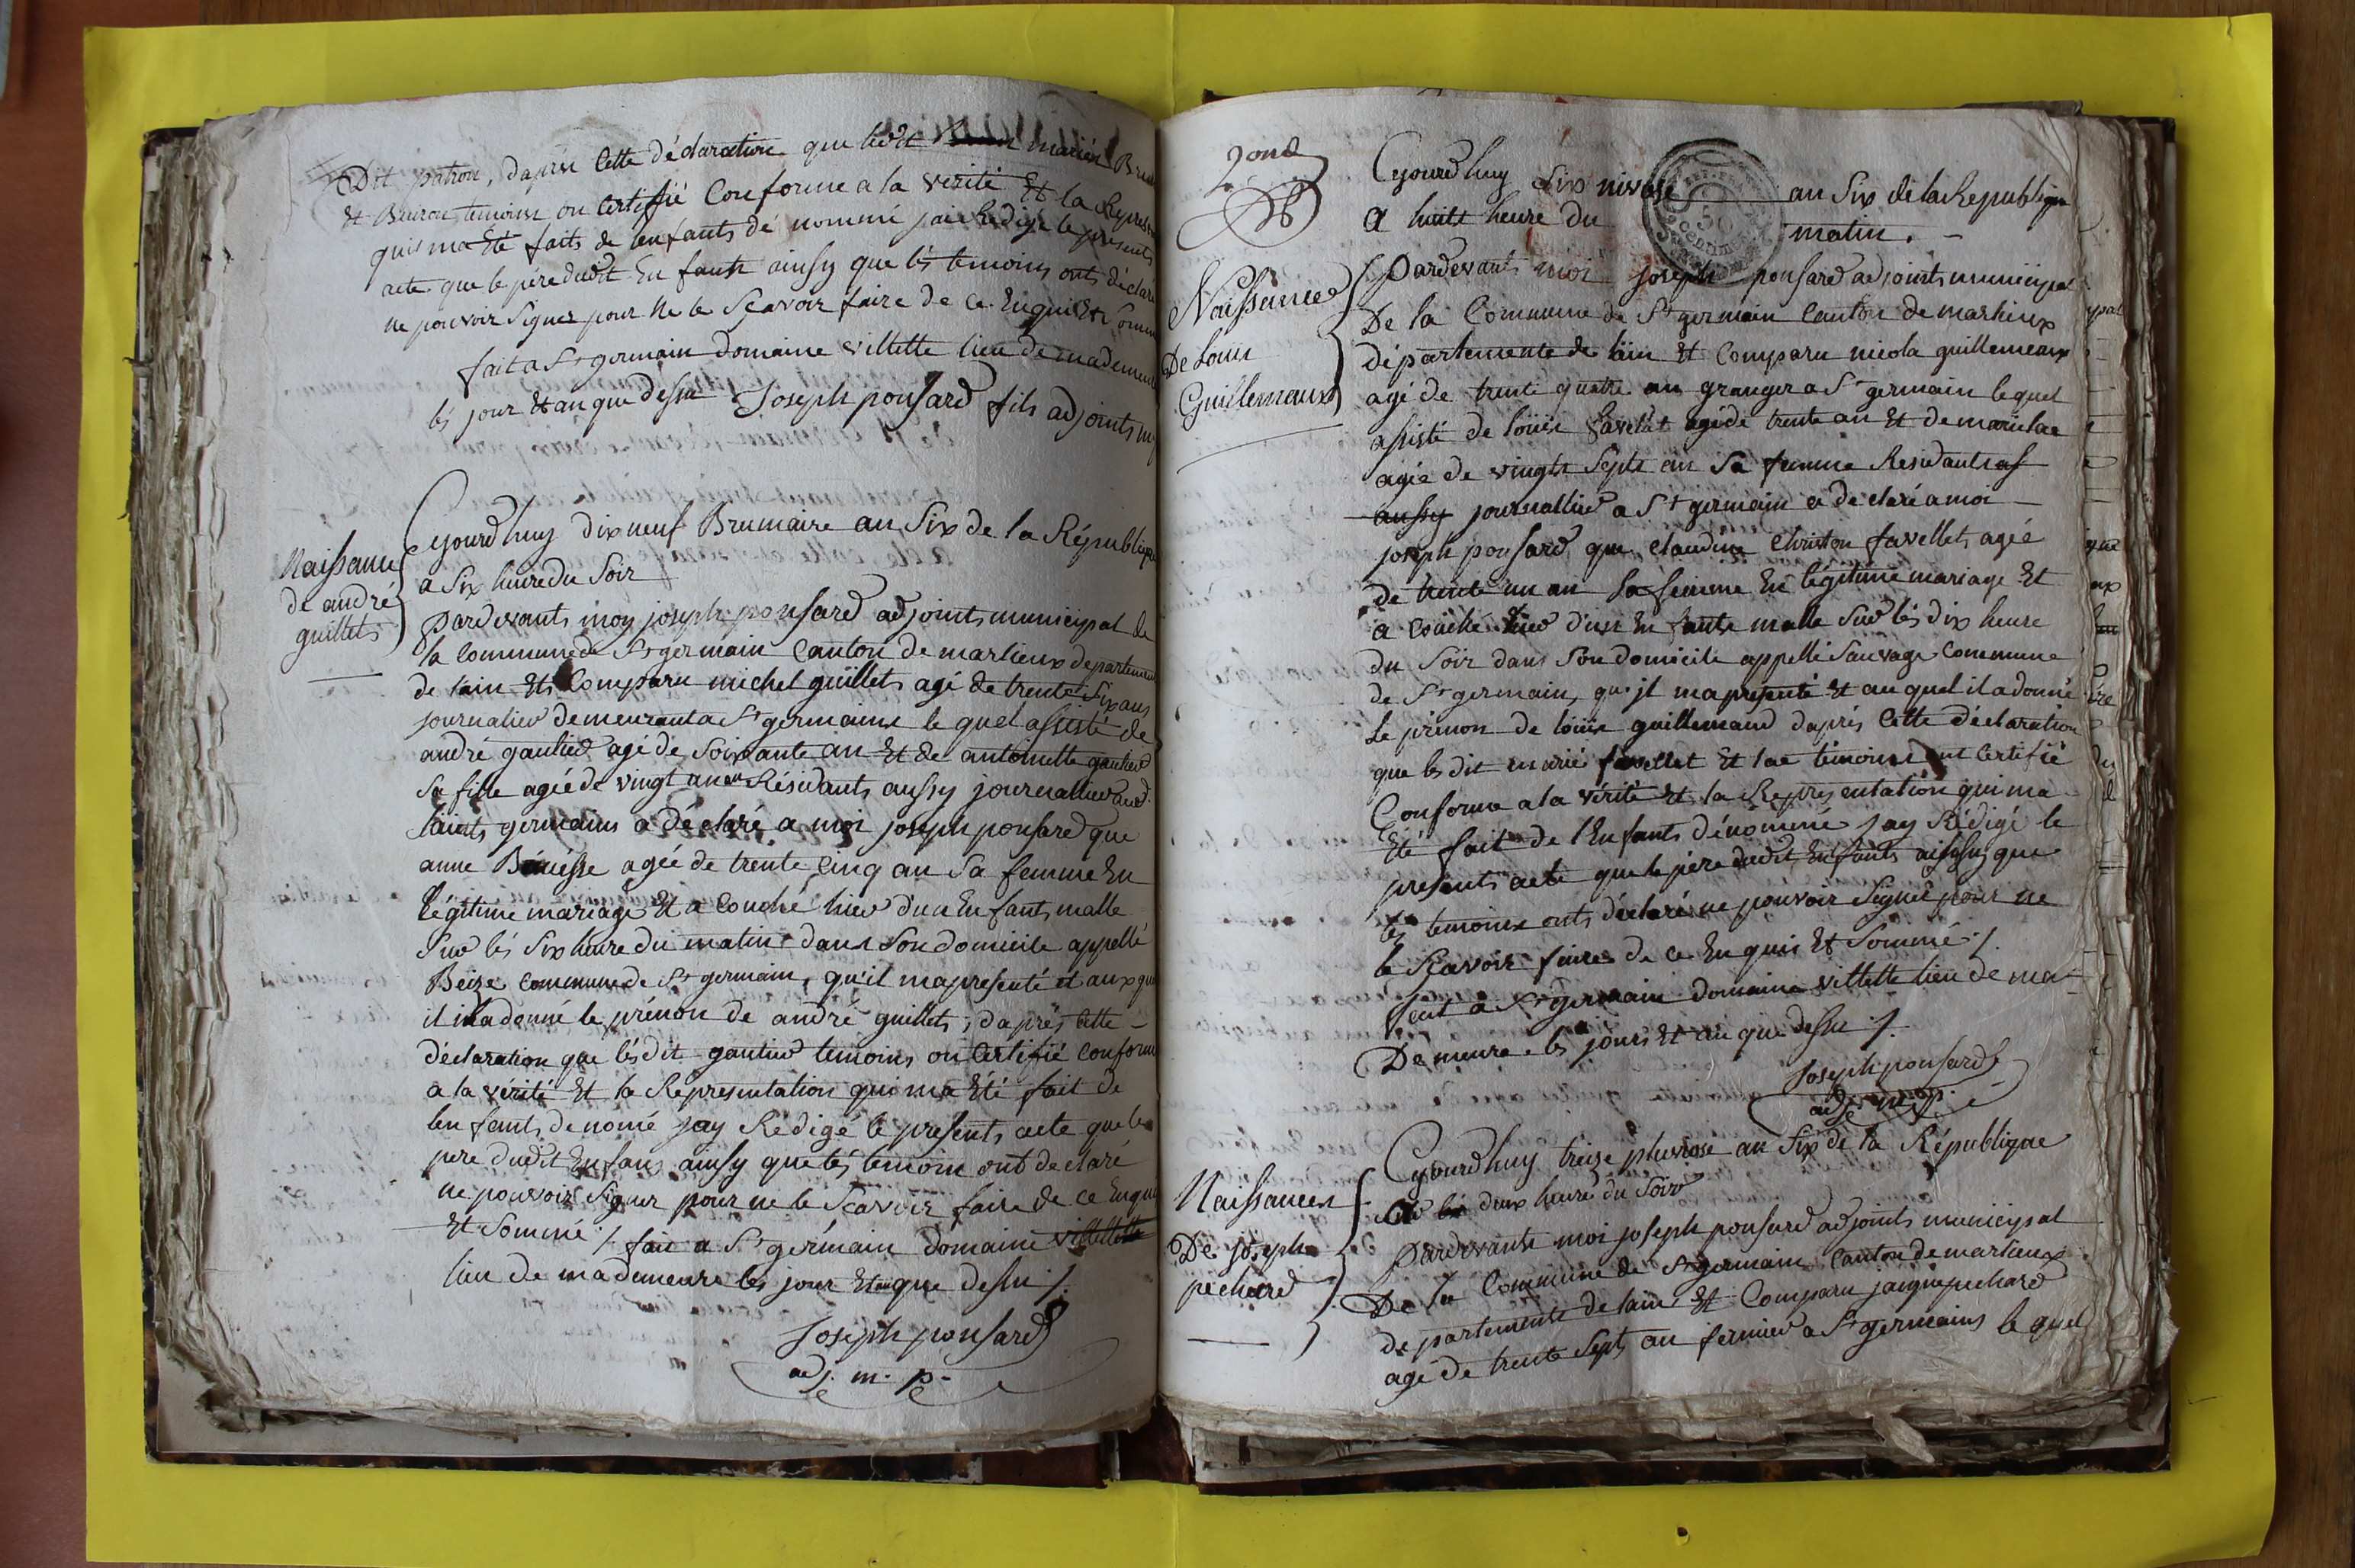 Dit patron, daprés Cette Déclaration que lesdt mariés
Et temoins on Certifié Conforme a la verité Et la
qui ma Eté faits de lenfants dé nommé jai Rédigé le presents
acte que le pere dudit Enfants ainsy que lés temoins onts déclaré
ne pouvoir Signer pour Ne le Scavoir faire de ce Enquis Et Somm
fait a St germain Domaine villette lieu de mademeure
lés jour Et an que dessu Joseph ponsard fils adjoints
Cejourdhuy dix neuf Brumaire an Six de la République
a Six heure du Soir
Naissance
de andré
guillets
pardevants moy joseph ponsard adjoints municipal de
la Commune de St germain Canton de marlieux departement
de lain Ets Comparu michel guillets agé de trente Six ans
journalier demeurant a St germains le quel assisté de
andré gautier agé de Soixante an Et de antoinette gautier
Sa fille agée de vingt an Résidants aussy journallier
Saints germains a déclaré a moi joseph ponsard que
anne agée de trente Cinq an Sa femme En
légitime mariage Et a Couché hier d'un Enfants malle
Sur lés Six heure du matin dans Son domicile appellé
Beize Commune de St germain, qu'il mapresenté et aux que
il a donné le prénon de andré guillets, daprés Cette
déclaration que lésdit gautier temoins on Certifié Conforme
a la vérité Et la Représentation qui ma Eté fait de
lenfants denomé jay Redigé le présents acte que le
pere dudit Enfans ainsy que lés temoins ont declaré
ne pouvoir Signer pour ne le Scavoir faire de ce Enquis
Et Sommé / fait a St germain domaine villette
lieu de mademeure les jour Et an que dessu /.
Joseph ponsard
adj. m. p.
Cejourdhuy Six nivose an Six de la Republique
A huit heure du matin.
Naissance
De Louis
Guillemaux
Pardevants moi joseph ponsard adjoints municipal
De la Commune de St germain Canton de marlieux
départemente de lain Et Comparu nicola guillemeaux
agé de trente quatre an granger a St germain le quel
assisté de louis favelat agé de trente an Et de
agée de vingts Septs an Sa femme Residants
aussy journallier a St germain a declaré a moi
joseph ponsard que claudine Christon favellet agée
de trente un an Sa femme En légitime mariage Et
a Couché hier d'un Enfants malle Sur lés dix heure
du Soir dans Son domicile appellé Sauvage Commune
de St germain, qu'jl mapresenté Et au quel il a donné
Le prénon de louis guillemaud daprés Cette déclaration
que les dit mariés favellet Et témoins ont Certifié
Conforme a la vérité Et la Representation qui ma
Eté fait de l'Enfants dénommé jay Rédigé le
presents acte que le pere dudit Enfants ainsy que
lés temoins onts déclaré ne pouvoir Signer pour ne
le Scavoir faire de ce Enquis Et Sommé /.
fait a St germain domaine villette lieu de ma
Démeure lés jours Et an que dessu /.
Joseph ponsard
adj. m. p.
Cejourdhuy treize pluviose an Six de la République
deux heure du Soir
Naissances
De joseph
pechard
pardevants moi joseph ponsard adjoints municipal
De la Commune de St germain Canton de marlieux
departemente de lain Et Comparu jacque pechard
agé de trente Septs an fermier a St germains le quel